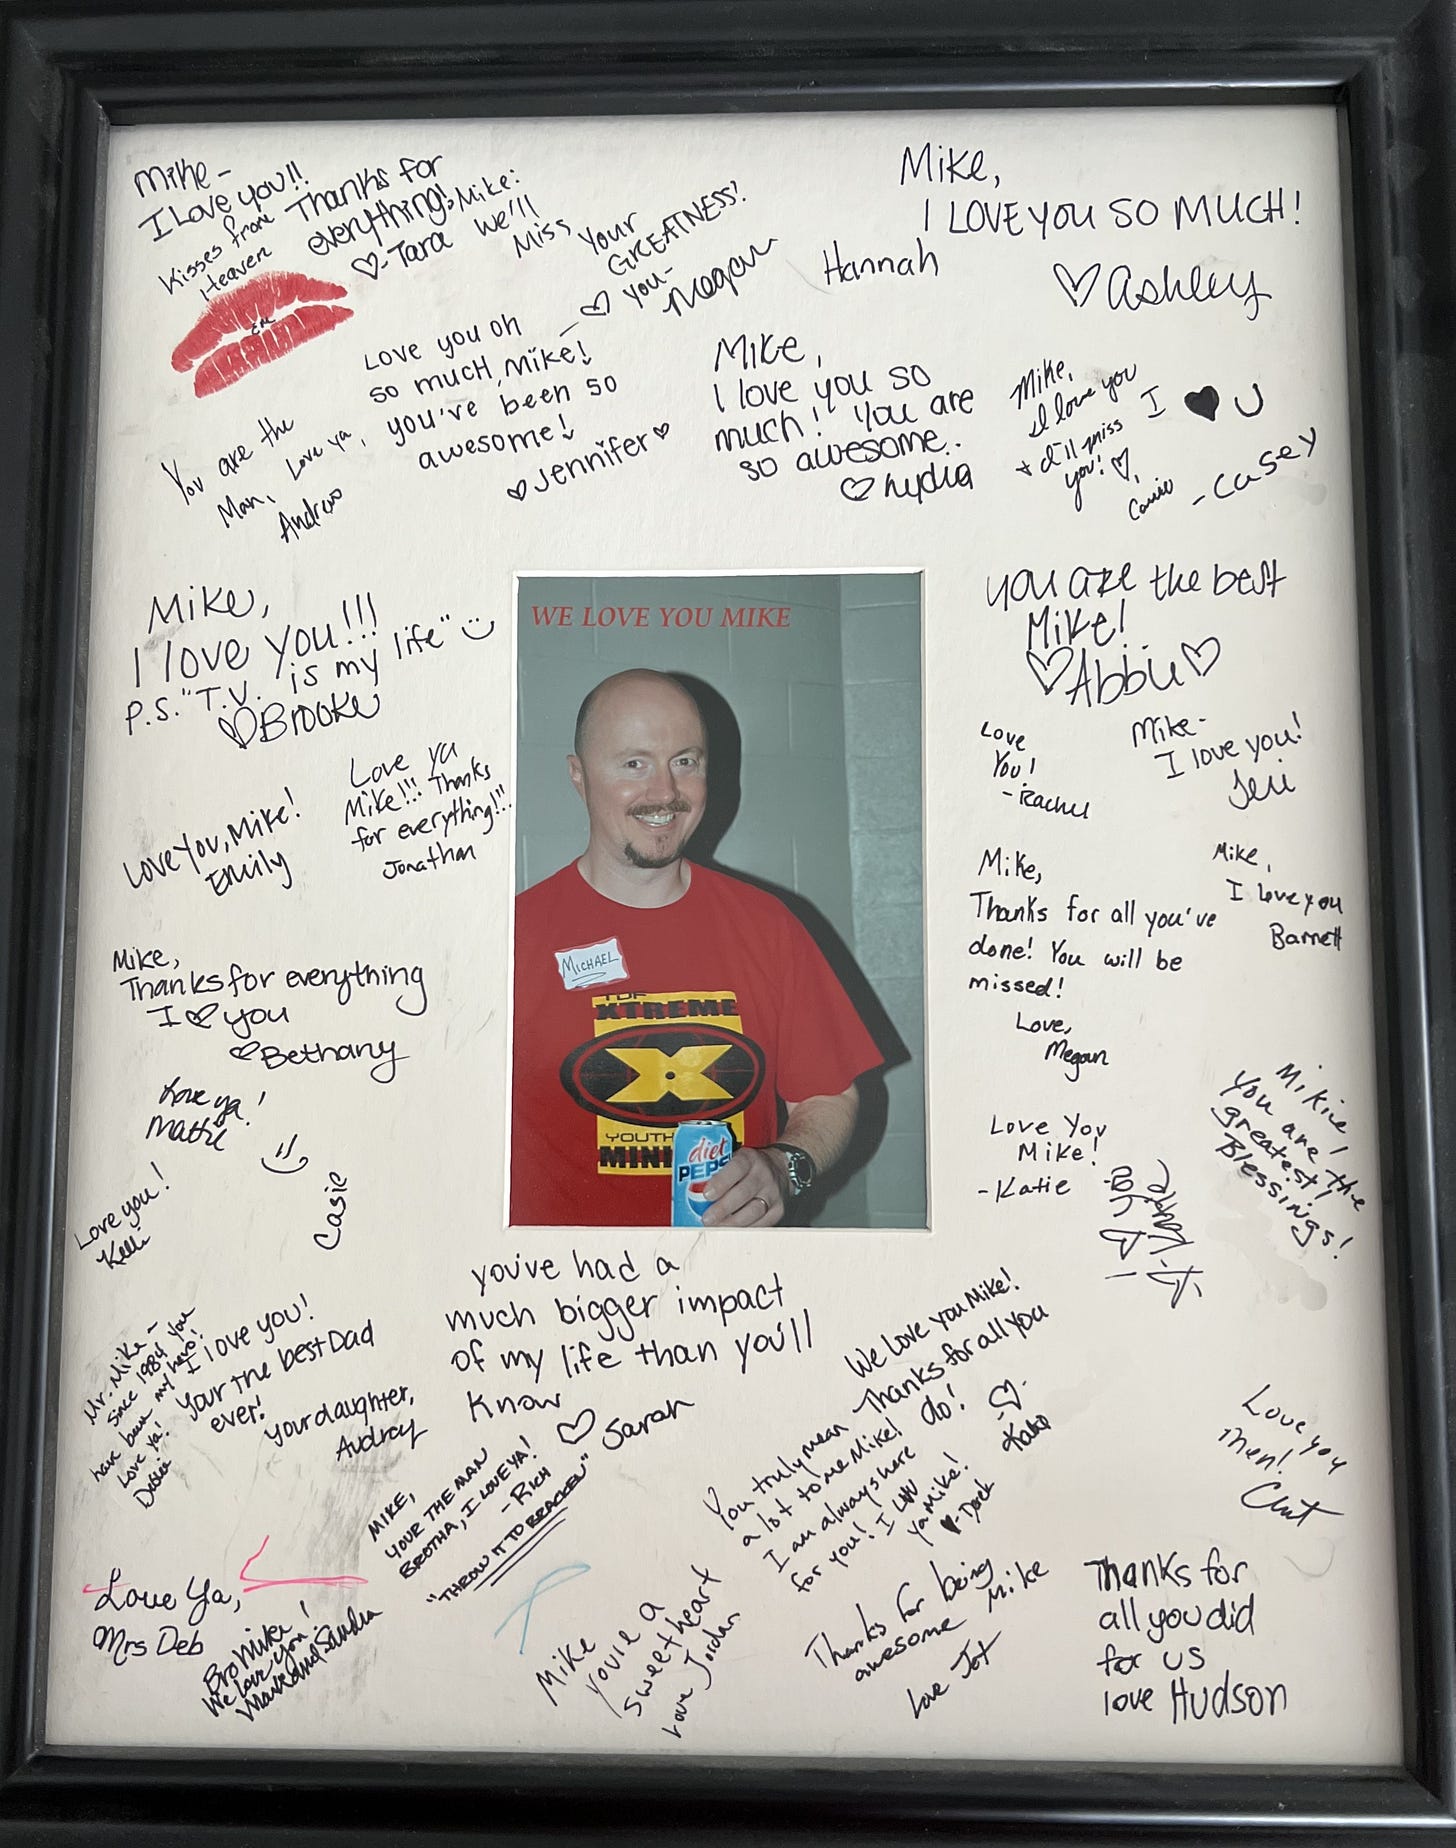 Mike-
I Love you!!
Kisses from
Heaven
Thanks for
everything!
♡-Tara
Mike:
We'll
Miss
Your
GREATNESS!
♡ you-
Megan
Hannah
Mike,
I LOVE YOU SO MUCH!
♡ Ashley
Love you oh
so much, Mike!
you've been so
awesome!
♡Jennifer♡
You are the
Man,
Love ya,
Andrew
Mike,
I love you so
much! You are
so awesome.
♡ Lydia
Mike,
I love you
+ I'll miss
you! ♡,
I ♥ U
-Casey
Mike,
I love you!!!
P.S. "T.V. is my life" :)
♡Brooke
WE LOVE YOU MIKE
MICHAEL
XTREME
X
YOUTH
MINI
diet
PEPSI
you are the best
Mike!
♡Abbie♡
Love
You!
-Rachel
Mike-
I love you!
Jeri
Love You, Mike!
Emily
Love ya
Mike!!! Thanks
for everything!!!
Jonathan
Mike,
Thanks for all you've
done! You will be
missed!
Love,
Megan
Mike,
I love you
Barnett
Mike,
Thanks for everything
I ♡ you
♡Bethany
Love ya!
Mattie
:)
Casie
Love you!
Kelli
Love You
Mike!
-Katie
Mikie!
You are the
greatest!
Blessings!
you've had a
much bigger impact
of my life than you'll
know
♡ Sarah
Mr. Mike-
since 1984 you
have been my hero!
Love ya!
I love you!
Your the best Dad
ever!
your daughter,
Audrey
MIKE,
YOUR THE MAN
BROTHA, I LOVE YA!
- RICH
"THROW IT TO BRACKEN"
We love you Mike!
Thanks for all you
do!
♡-
You truly mean
a lot to me Mike!
I am always here
for you! I LUV
ya Mike!
♥-Derek
Love you
man!
Clint
Love Ya,
Mrs Deb
Bro Mike!
We love you!
Mark and Sandra
Mike
you're a
sweetheart
Love Jordan
Thanks for being
awesome Mike
Love Jot
Thanks for
all you did
for us
love Hudson